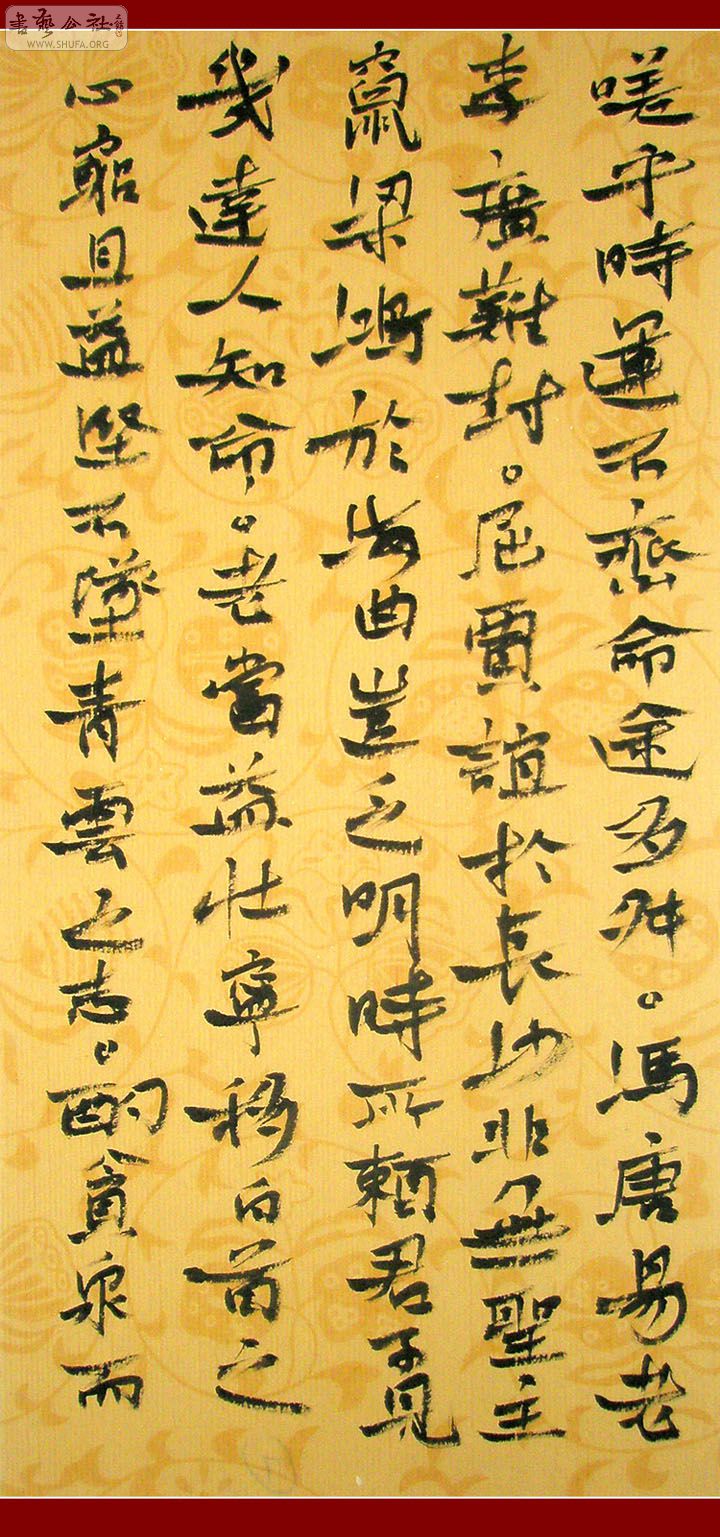 嗟乎時運不齊命途多舛。馮唐易老
李廣難封。屈賈誼於長沙非無聖主
竄梁鴻於海曲豈乏明時所賴君子見
幾達人知命。老當益壯寧移白首之
心窮且益堅不墜青雲之志。酌貪泉而
書藝公社
WWW.SHUFA.ORG